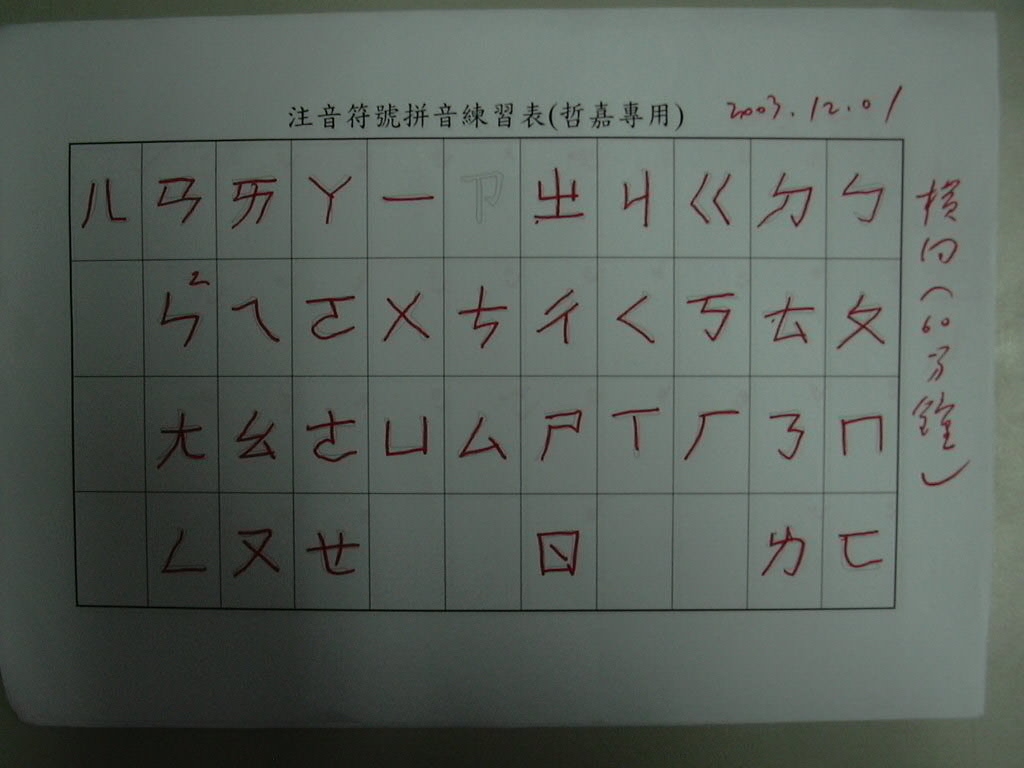 注音符號拼音練習表(哲嘉專用)
2003.12.01
ㄦ ㄢ ㄞ ㄚ ㄧ ㄗ ㄓ ㄐ ㄍ ㄉ ㄅ
ㄣ2 ㄟ ㄛ ㄨ ㄘ ㄔ ㄑ ㄎ ㄊ ㄆ
ㄤ ㄠ ㄜ ㄩ ㄙ ㄕ ㄒ ㄏ ㄋ ㄇ
ㄥ ㄡ ㄝ ㄖ ㄌ ㄈ
橫向(60分鐘)